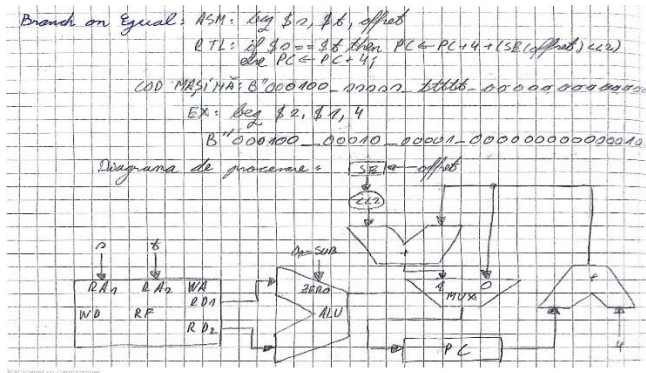 Branch on Equal: ASM: beq $s, $t, offset
RTL: if $s == $t then PC ← PC+4+(SE(offset)<<2)
else PC ← PC+4;
COD MAȘINĂ: B"000100_sssss_ttttt_ooooooooooooo
EX: beq $2, $1, 4
B"000100_00010_00001_00000000000010
Diagrama de procesare: SE ← offset
<<2
s t Op=SUB +
RA1 RA2 WA ZERO 1 0 +
RD1 MUX
WD RF ALU
RD2 PC 4